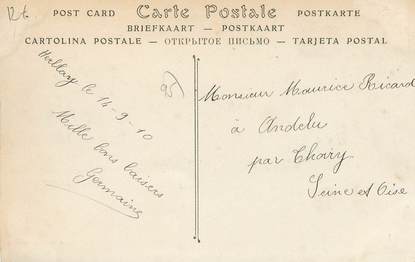 POST CARD Carte Postale POSTKARTE
BRIEFKAART — POSTKAART
CARTOLINA POSTALE — ОТКРЫТОЕ ПИСЬМО — TARJETA POSTAL
le 14-9-10
Mille bons baisers
Germaine
Monsieur Maurice Ricard
à Andelu
par Thoiry
Seine et Oise